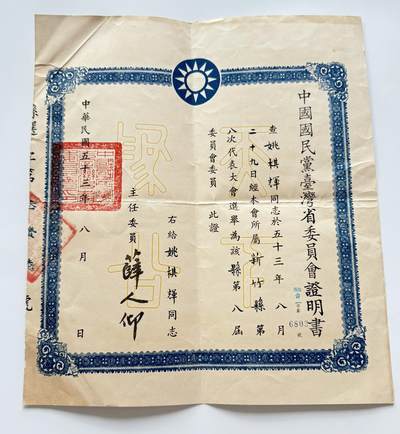 中國國民黨臺灣省委員會證明書
查姚棋輝同志於五十三年八月
二十九日經本會所屬新竹縣第
八次代表大會選舉為該縣第八屆
委員會委員 此證
右給姚棋輝同志
主任委員 薛人仰
中華民國五十三年 八月 日